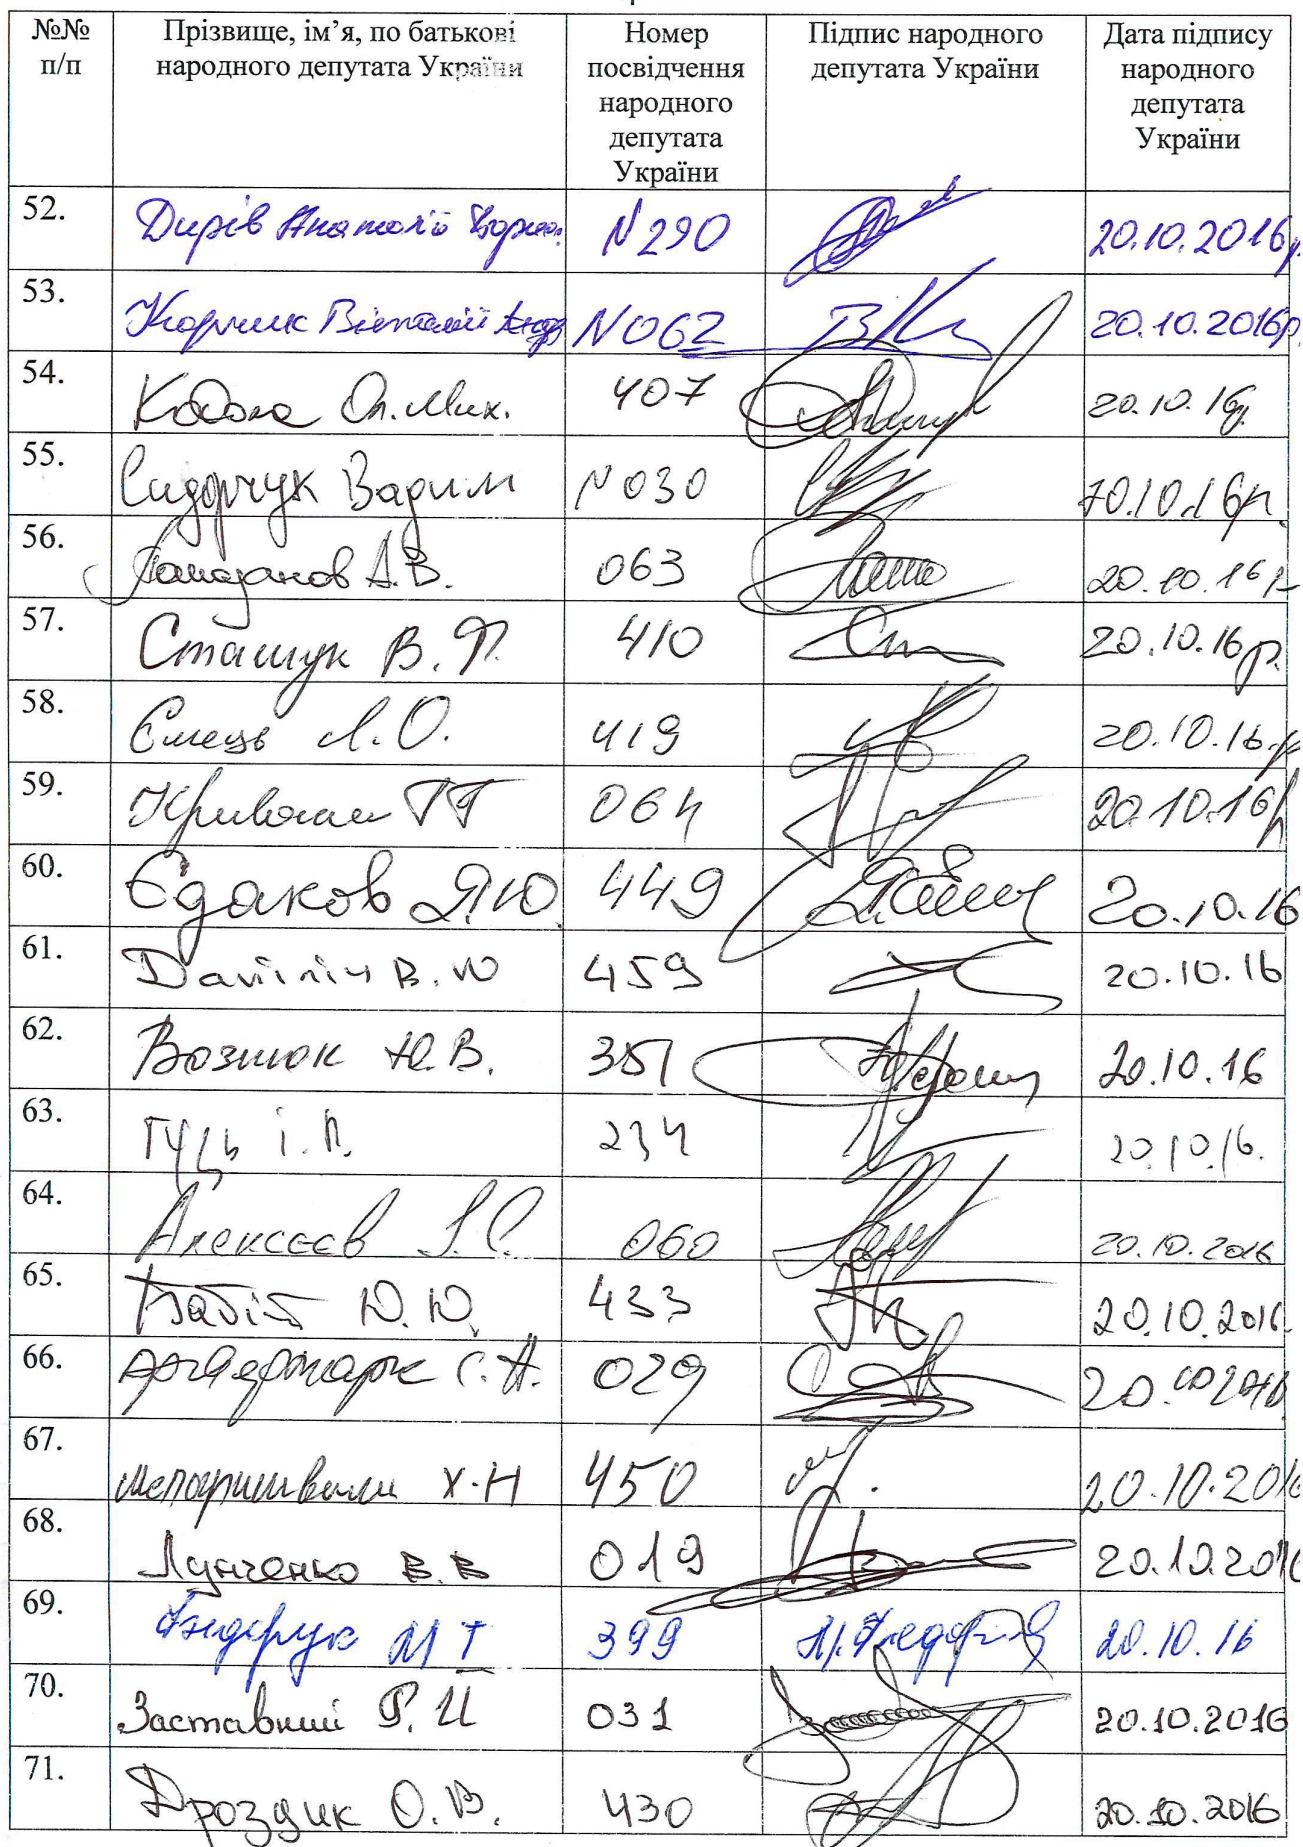 №№ п/п Прізвище, ім’я, по батькові народного депутата України Номер посвідчення народного депутата України Підпис народного депутата України Дата підпису народного депутата України
52. Дирів Анатолій N290 20.10.2016р
53. Корчик Віталій Андр N062 20.10.2016р.
54. Кодола Ол. Мих. 407 20.10.16р.
55. Сидорчук Вадим N030 20.10.16р.
56. Помазанов А.В. 063 20.10.16р
57. Сташук В.Ф. 410 20.10.16р.
58. Ємець Л.О. 419 20.10.16.р
59. 064 20.10.16р
60. Єдаков Я.Ю 449 20.10.16
61. В.Ю 459 20.10.16
62. Вознюк Ю.В. 351 20.10.16
63. Гузь І.В. 234 20.10.16.
64. Алексєєв І.С. 060 20.10.2016
65. Бабій Ю.Ю. 433 20.10.2016
66. С.А. 029 20.10.2016
67. Х.Н 450 20.10.2016
68. Лунченко В.В 019 20.10.2016
69. Федорук М Т 399 М. Федорук 20.10.16
70. Заставний Р.Й 031 20.10.2016
71. Дроздик О.В. 430 20.10.2016